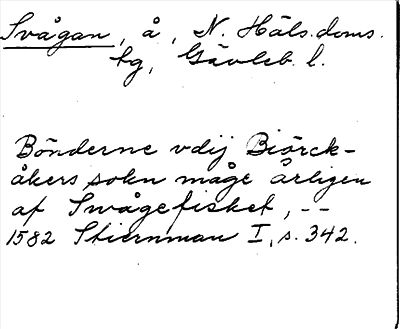 Svågan, å, N. Häls. doms.
tg, Gävleb. l.
Bönderne vdij Biörck-
åkers sokn måge årligen
af Swågefisket, --
1582 Stiernman I, s. 342.